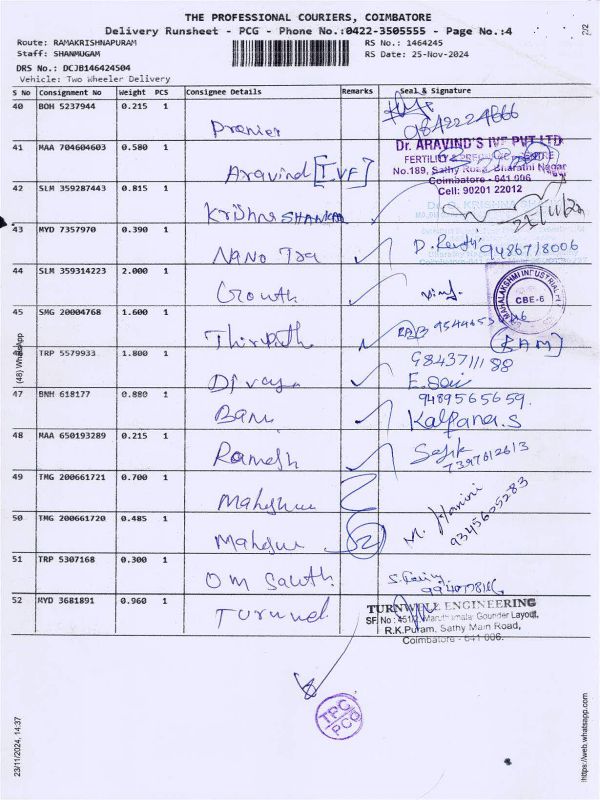 THE PROFESSIONAL COURIERS, COIMBATORE
Delivery Runsheet - PCG - Phone No.:0422-3505555 - Page No.:4
2/2
Route: RAMAKRISHNAPURAM
Staff: SHANMUGAM
RS No.: 1464245
RS Date: 25-Nov-2024
DRS No.: DCJB146424504
Vehicle: Two Wheeler Delivery
S No Consignment No Weight PCS Consignee Details Remarks Seal & Signature
40 BOH 5237944 0.215 1
Premier 9842224666
41 MAA 704604603 0.580 1
Aravind [IVF]
Dr. ARAVIND'S IVF PVT LTD
FERTILITY & CENTRE
No.189, Sathy Road, Bharathi Nagar
Coimbatore - 641 006
Cell: 90201 22012
42 SLM 359287443 0.815 1
Krishna SHANKAR
43 MYD 7357970 0.390 1
Nano Tea 9486718006
44 SLM 359314223 2.000 1
Growth
MAHALAKSHMI INDUSTRIAL
CBE-6
45 SMG 20004768 1.600 1
Thirupath
[RAM]
46 TRP 5579933 1.800 1
Divaya
9843711188
47 BNH 618177 0.880 1
Banu
9489565659.
Kalpana.S
48 MAA 650193289 0.215 1
Ramesh
7397612613
49 TMG 200661721 0.700 1
50 TMG 200661720 0.485 1
M.
9345605283
51 TRP 5307168 0.300 1
OM Sakth
52 MYD 3681891 0.960 1
Turnwel
TURNWELL ENGINEERING
SF.No : 451/2, Maruthamalai Gounder Layout,
R.K.Puram, Sathy Main Road,
Coimbatore - 641 006.
TPC
PCG
(48) WhatsApp
23/11/2024, 14:37
https://web.whatsapp.com